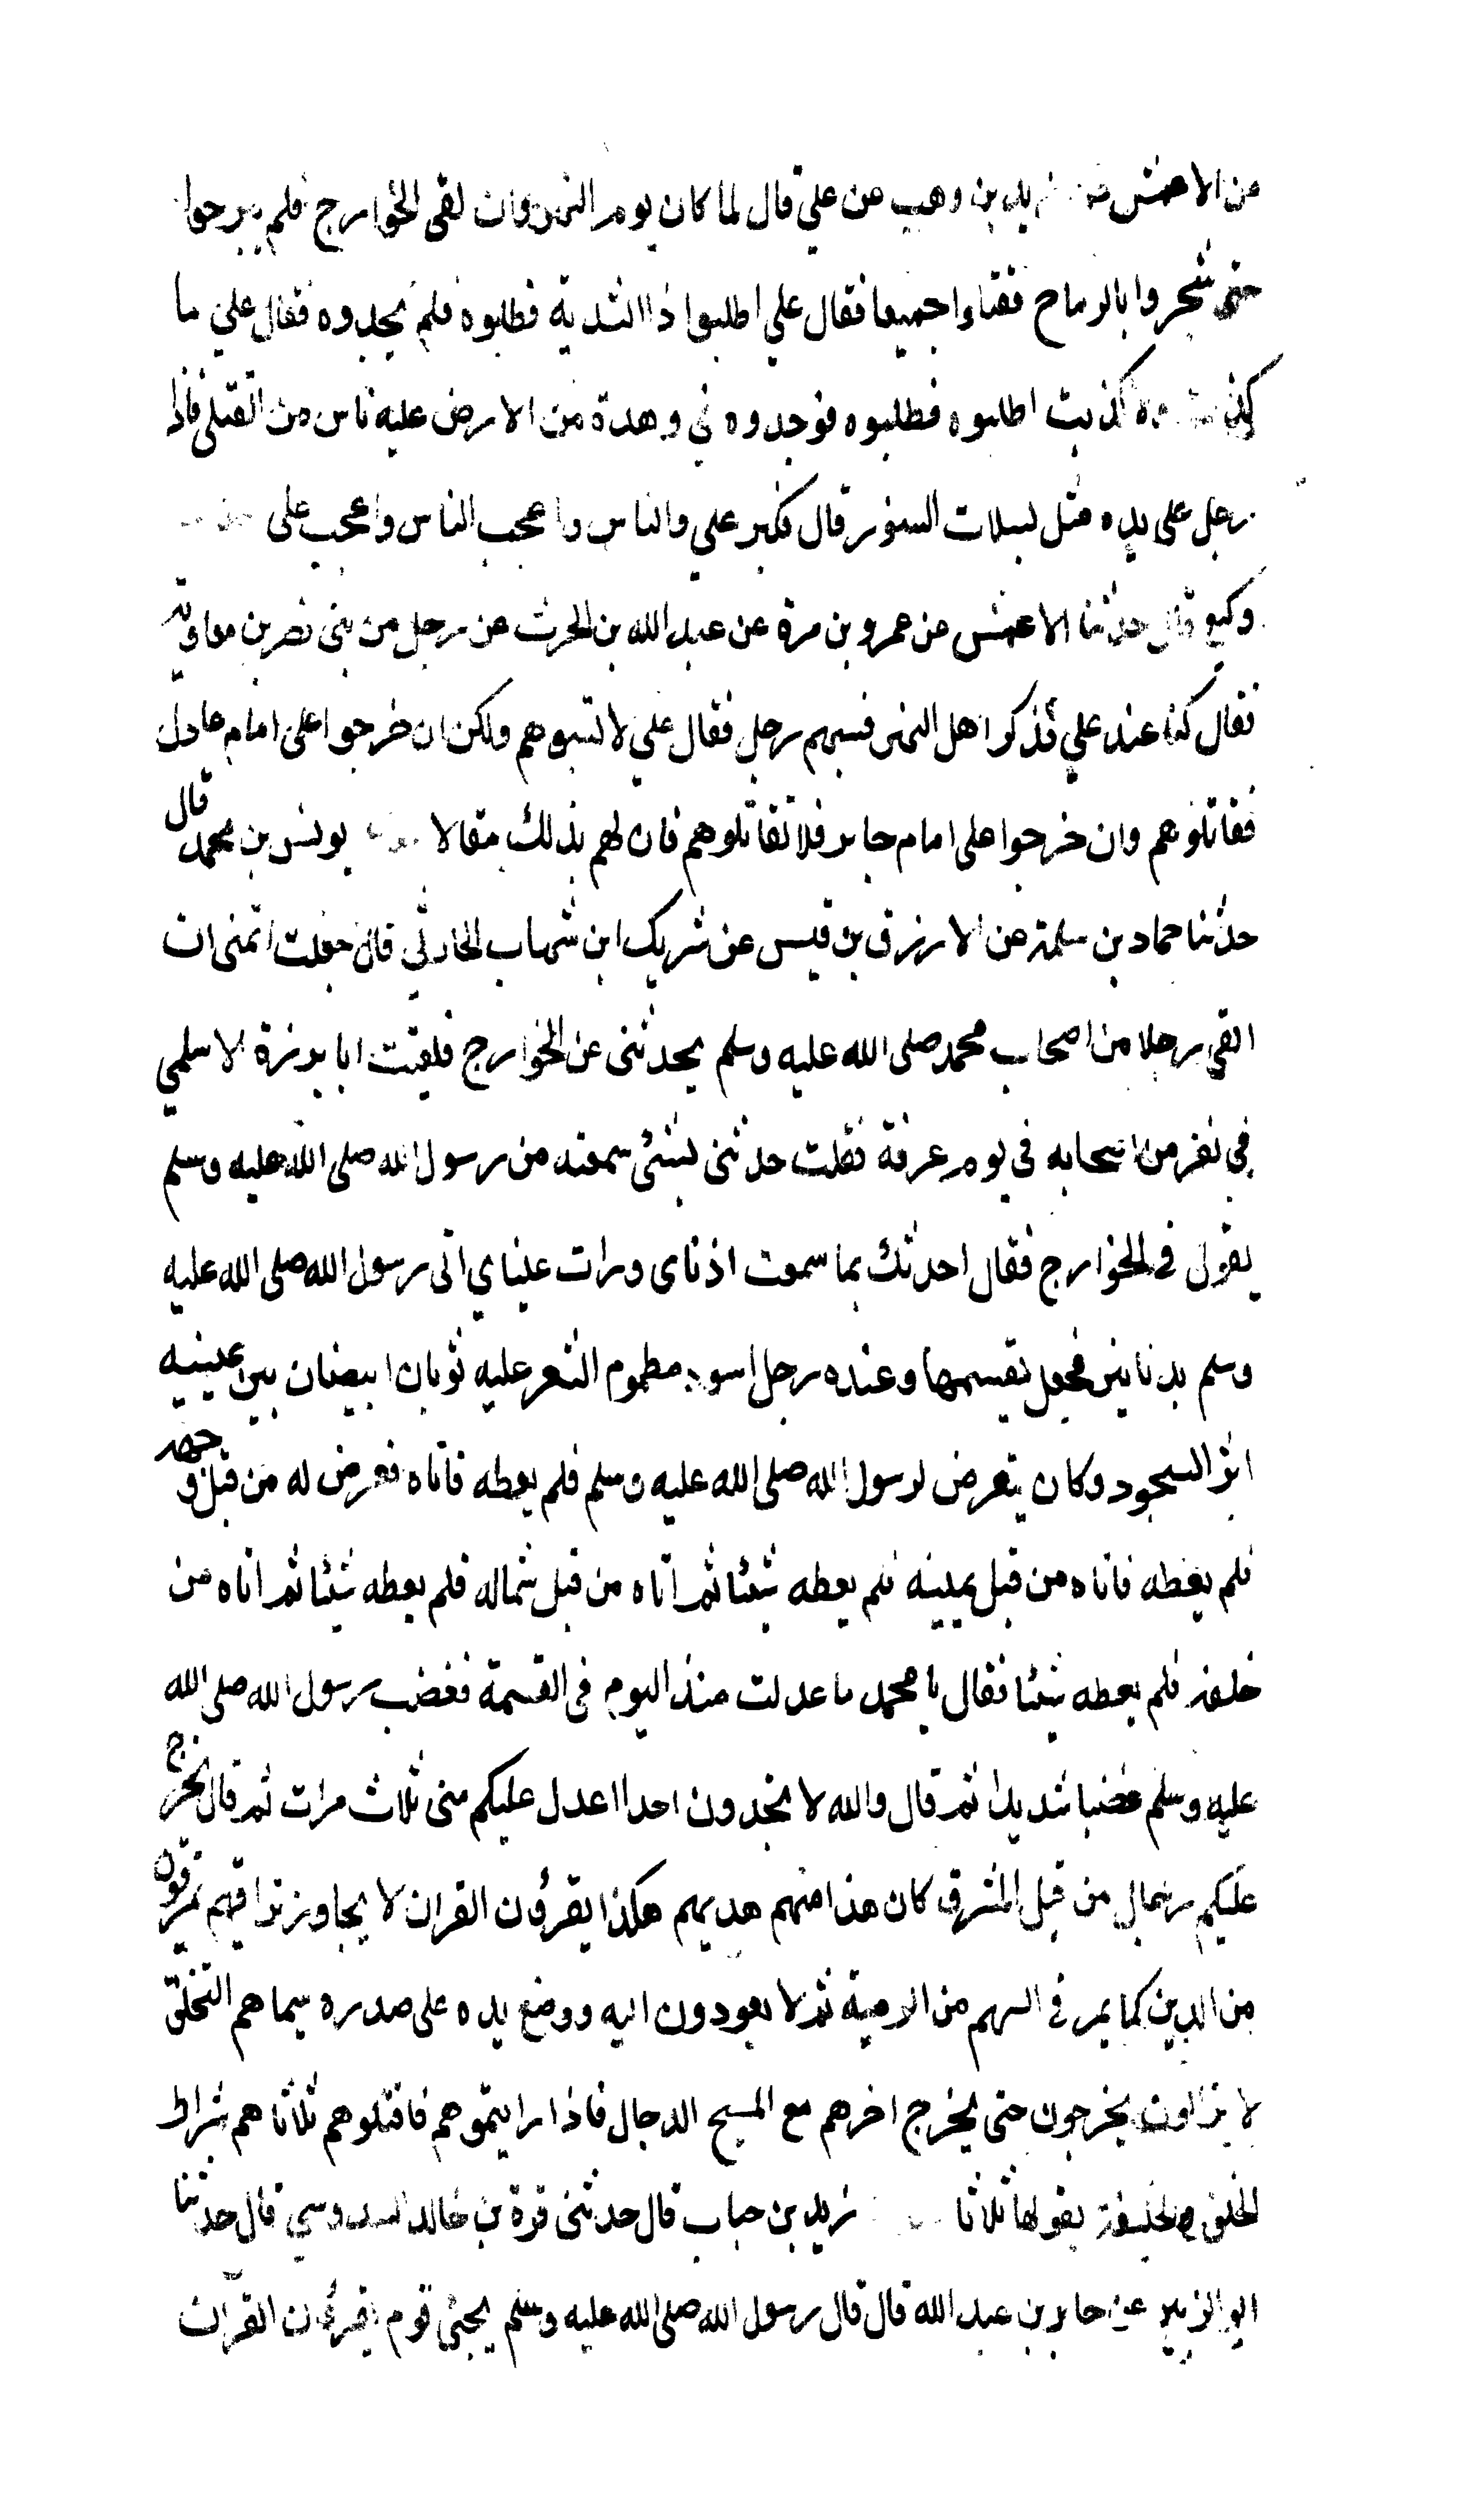 عن الاعمش عن زيد بن وهب عن علي قال لما كان يوم النهروان لقى الخوارج فلم يبرحوا
حتى شجروا بالرماح فقتلوا جميعا فقال علي اطلبوا ذا الثدية فطلبوه فلم يجدوه فقال علي ما
كذبت ولا كذبت اطلبوه فطلبوه فوجدوه في وهدة من الارض عليه ناس من القتلى فاذا
رجل على يده مثل سبلات السنور قال فكبر علي والناس واعجب الناس واعجب على
وكيع قال حدثنا الاعمش عن عمرو بن مرة عن عبد الله بن الحرث عن رجل من بنى نصر بن معاوية
فقال كنا عند علي فذكروا اهل النهر فسبهم رجل فقال علي لا تسبوهم ولكن ان خرجوا على امام عادل
فقاتلوهم وان خرجوا على امام جاير فلا تقاتلوهم فان لهم بذلك مقالا يونس بن محمد قال
حدثنا حماد بن سلمة عن الازرق بن قيس عن شريك ابن شهاب الحارثي قال جعلت اتمنى ان
القى رجلا من اصحاب محمد صلى الله عليه وسلم يحدثنى عن الخوارج فلقيت ابا برزة الاسلمي
في نفر من اصحابه في يوم عرفة فقلت حدثنى بشئ سمعته من رسول الله صلى الله عليه وسلم
يقول في الخوارج فقال احدثك بما سمعت اذناى ورات عيناي اتى رسول الله صلى الله عليه
وسلم بدنانير فجعل يقسمها وعنده رجل اسود مطموم الشعر عليه ثوبان ابيضان بين عينيه
اثر السجود وكان يتعرض لرسول الله صلى الله عليه وسلم فلم يعطه فاتاه فعرض له من قبل وجهه
فلم يعطه فاتاه من قبل يمينه فلم يعطه شيئا ثم اتاه من قبل شماله فلم يعطه شيئا ثم اتاه من
خلفه فلم يعطه شيئا فقال يا محمد ما عدلت منذ اليوم في القسمة فغضب رسول الله صلى الله
عليه وسلم غضبا شديدا ثم قال والله لا تجدون احدا اعدل عليكم منى ثلاث مرات ثم قال يخرج
عليكم رجال من قبل المشرق كان هذا منهم هديهم هكذا يقرؤن القران لا يجاوز تراقيهم يمرقون
من الدين كما يمرق السهم من الرمية ثم لا يعودون اليه ووضع يده على صدره سيماهم التحلق
لا يزالون يخرجون حتى يخرج اخرهم مع المسيح الدجال فاذا رايتموهم فاقتلوهم ثلاثا هم شرار
الخلق والخليقة يقولها ثلاثا زيد بن حباب قال حدثنى قرة بن خالد السدوسي قال حدثنا
ابو الزبير عن جابر بن عبد الله قال قال رسول الله صلى الله عليه وسلم يجئ قوم يقرؤن القرآن